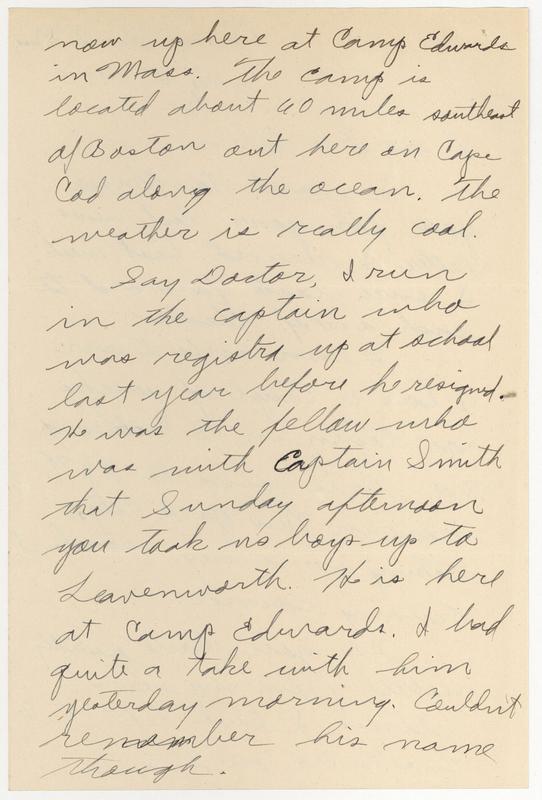 now up here at Camp Edwards
in Mass. The camp is
located about 60 miles southeast
of Boston out here on Cape
Cod along the ocean. The
weather is really cool.
Say Doctor, I run
in the captain who
was registra up at school
last year before he resigned.
He was the fellow who
was with Captain Smith
that Sunday afternoon
you took us boys up to
Leavenworth. He is here
at Camp Edwards. I had
quite a take with him
yesterday morning. Couldn't
remember his name
though.